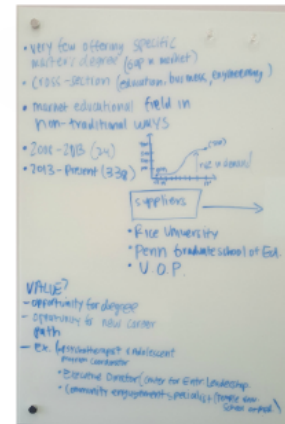 • Very few offering specific
master's degree (gap in market)
• Cross-section (education, business, engineering)
• market educational field in
non-traditional ways
• 2008-2013 (24)
• 2013-Present (338)
rise in demand
suppliers
• Rice University
• Penn Graduate school of Ed.
• U.O.P.
VALUE?
- opportunity for degree
- opportunity for new career
path
- Ex. Psychotherapist & adolescent
program coordinator
• Executive Director, Center for Entr. Leadership
• Community engagement specialist
School